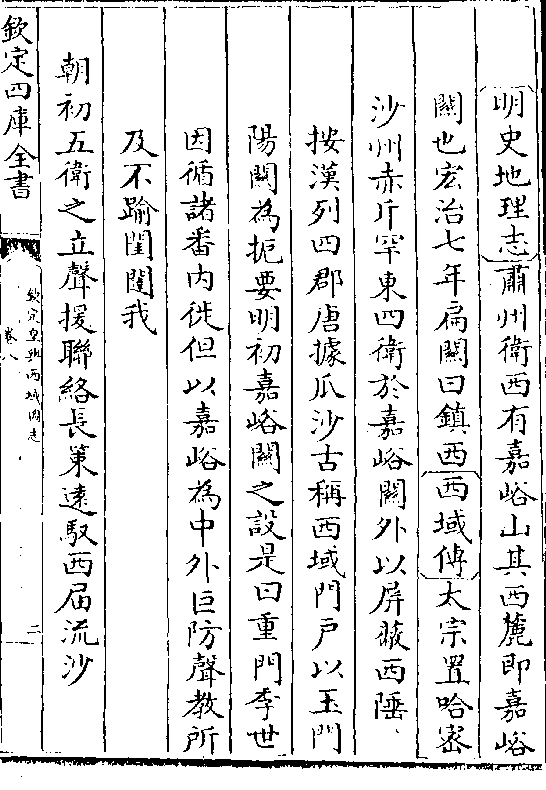 明史地理志肅州衛西有嘉峪山其西麓即嘉峪
關也宏治七年扁關曰鎮西西域傳太宗置哈密
沙州赤斤罕東四衛於嘉峪關外以屏蔽西陲
按漢列四郡唐據瓜沙古稱西域門戸以玉門
陽關為扼要明初嘉峪關之設是曰重門季世
因循諸番内徙但以嘉峪為中外巨防聲教所
及不踰閨闥我
朝初五衛之立聲援聯絡長策逺馭西届流沙
欽定四庫全書
欽定皇輿西域圖志
卷八
二